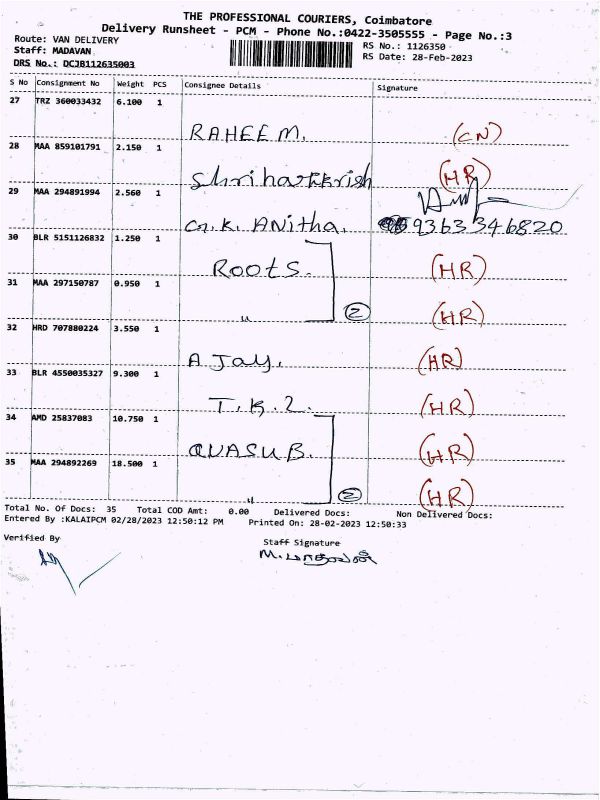 THE PROFESSIONAL COURIERS, Coimbatore
Delivery Runsheet - PCM - Phone No.:0422-3505555 - Page No.:3
Route: VAN DELIVERY
RS No.: 1126350
Staff: MADAVAN
RS Date: 28-Feb-2023
DRS No.: DCJB112635003
S No Consignment No Weight PCS Consignee Details Signature
27 TRZ 360033432 6.100 1 RAHEEM. (CN)
28 MAA 859101791 2.150 1 Shriharikrish (HR)
29 MAA 294891994 2.560 1 K. ANitha. 9363346820
30 BLR 5151126832 1.250 1 Roots. (HR)
31 MAA 297150787 0.950 1 " 2 (HR)
32 HRD 707880224 3.550 1 AJay. (HR)
33 BLR 4550035327 9.300 1 T.K.2. (HR)
34 AMD 25837083 10.750 1 QUASUB. (HR)
35 MAA 294892269 18.500 1 " 2 (HR)
Total No. Of Docs: 35 Total COD Amt: 0.00 Delivered Docs: Non Delivered Docs:
Entered By :KALAIPCM 02/28/2023 12:50:12 PM Printed On: 28-02-2023 12:50:33
Verified By
Staff Signature
M. மாதவன்